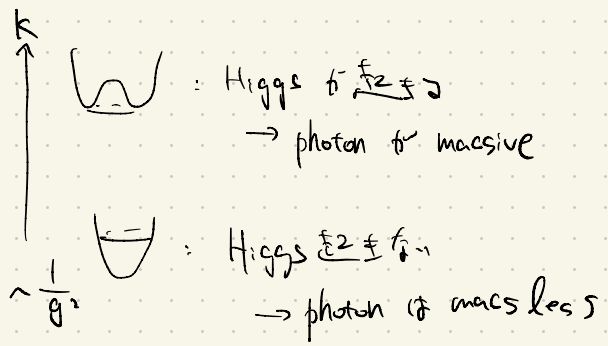 K
: Higgs が起きる
→ photon が massive
: Higgs 起きない
→ photon は massless
~ 1/g²